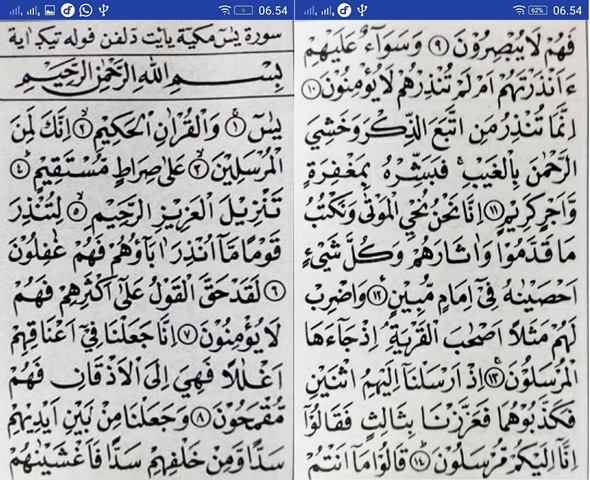 06.54
سورة يس مكية
بِسْــمِ اللهِ الرَّحْمٰنِ الرَّحِيْمِ
يٰسٓ ۝١ وَالْقُرْاٰنِ الْحَكِيْمِ ۝٢ اِنَّكَ لَمِنَ
الْمُرْسَلِيْنَ ۝٣ عَلٰى صِرَاطٍ مُّسْتَقِيْمٍ ۝٤
تَنْزِيْلَ الْعَزِيْزِ الرَّحِيْمِ ۝٥ لِتُنْذِرَ
قَوْمًا مَّآ اُنْذِرَ اٰبَآؤُهُمْ فَهُمْ غٰفِلُوْنَ
۝٦ لَقَدْ حَقَّ الْقَوْلُ عَلٰٓى اَكْثَرِهِمْ فَهُمْ
لَا يُؤْمِنُوْنَ ۝٧ اِنَّا جَعَلْنَا فِيْٓ اَعْنَاقِهِمْ
اَغْلٰلًا فَهِيَ اِلَى الْاَذْقَانِ فَهُمْ
مُّقْمَحُوْنَ ۝٨ وَجَعَلْنَا مِنْ بَيْنِ اَيْدِيْهِمْ
سَدًّا وَّمِنْ خَلْفِهِمْ سَدًّا فَاَغْشَيْنٰهُمْ
62% 06.54
فَهُمْ لَا يُبْصِرُوْنَ ۝٩ وَسَوَآءٌ عَلَيْهِمْ
ءَاَنْذَرْتَهُمْ اَمْ لَمْ تُنْذِرْهُمْ لَا يُؤْمِنُوْنَ ۝١٠
اِنَّمَا تُنْذِرُ مَنِ اتَّبَعَ الذِّكْرَ وَخَشِيَ
الرَّحْمٰنَ بِالْغَيْبِ ۚ فَبَشِّرْهُ بِمَغْفِرَةٍ
وَّاَجْرٍ كَرِيْمٍ ۝١١ اِنَّا نَحْنُ نُحْيِ الْمَوْتٰى وَنَكْتُبُ
مَا قَدَّمُوْا وَاٰثَارَهُمْ وَكُلَّ شَيْءٍ
اَحْصَيْنٰهُ فِيْٓ اِمَامٍ مُّبِيْنٍ ۝١٢ وَاضْرِبْ
لَهُمْ مَّثَلًا اَصْحٰبَ الْقَرْيَةِ ۘ اِذْ جَآءَهَا
الْمُرْسَلُوْنَ ۝١٣ اِذْ اَرْسَلْنَآ اِلَيْهِمُ اثْنَيْنِ
فَكَذَّبُوْهُمَا فَعَزَّزْنَا بِثَالِثٍ فَقَالُوْٓا
اِنَّآ اِلَيْكُمْ مُّرْسَلُوْنَ ۝١٤ قَالُوْا مَآ اَنْتُمْ